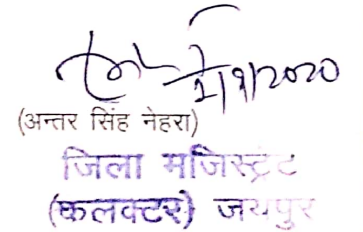 2/9/2020
(अन्तर सिंह नेहरा)
जिला मजिस्ट्रेट
(कलक्टर) जयपुर